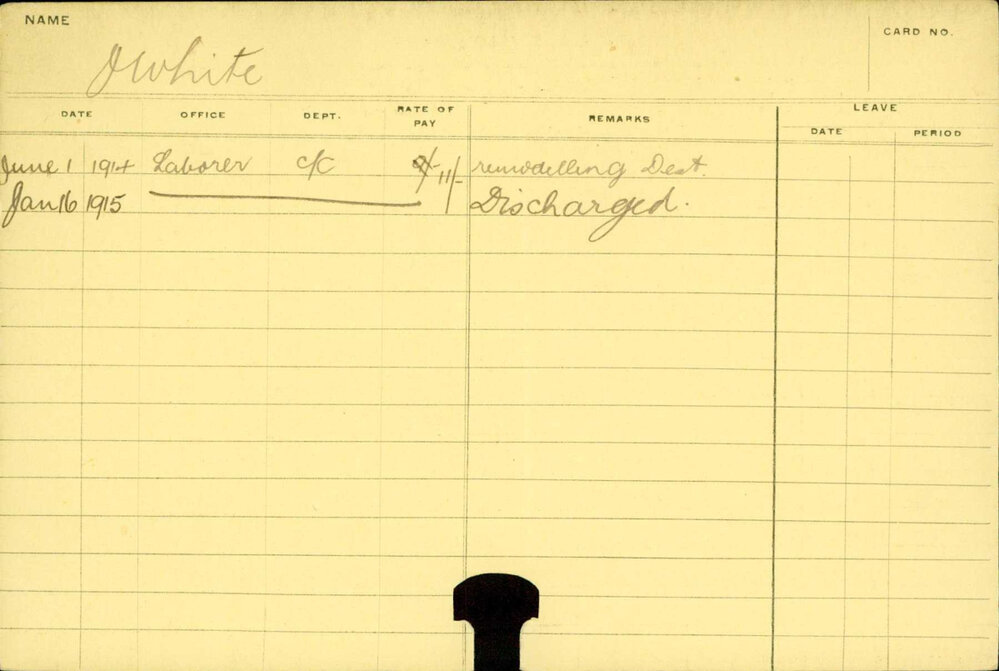 NAME
CARD NO.
J White
DATE OFFICE DEPT. RATE OF PAY REMARKS LEAVE
DATE PERIOD
June 1 1914 Laborer c/c 9/- 11/- remodelling Dest.
Jan 16 1915 Discharged.